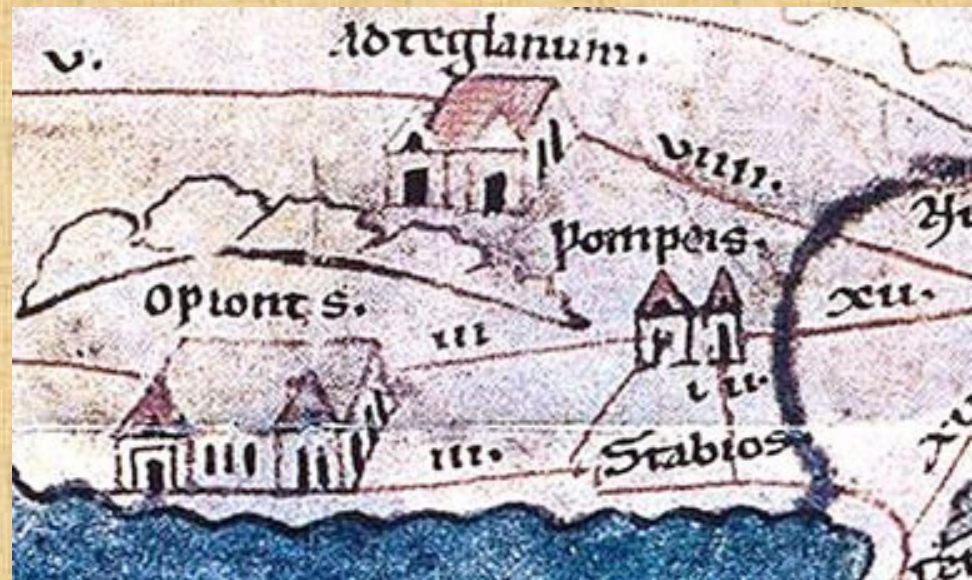 v.
Ad teglanum.
viiii.
Pompeis.
xii.
Oplontis.
iii
iii.
Stabios